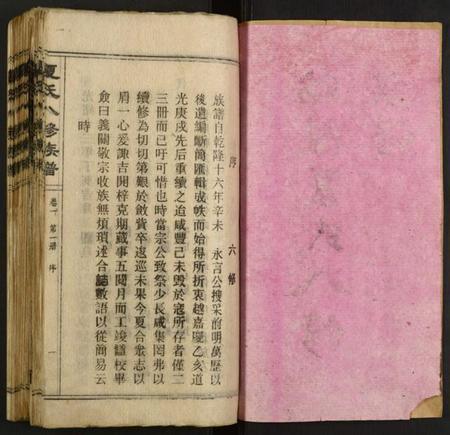 序　六修
族譜自乾隆十六年辛未　永言公搜采前明萬歷以
後遺編斷簡匯輯成帙而始得所折衷越嘉慶乙亥道
光庚戌先后重續之迨咸豐己未毀於寇所存者僅二
三冊而已吁可惜也時當宗公致祭少長咸集罔弗以
續修為切切第艱於斂貲卒逡巡未果今夏合衆志以
肩一心爰諏吉開梓克期蕆事五閱月而工竣讎校畢
僉曰義關敬宗收族無煩瑣述合誌數語以從簡易云
時
夏氏八修族普
卷一　第一册　序